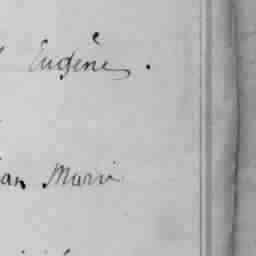 Eugène.
an Marie